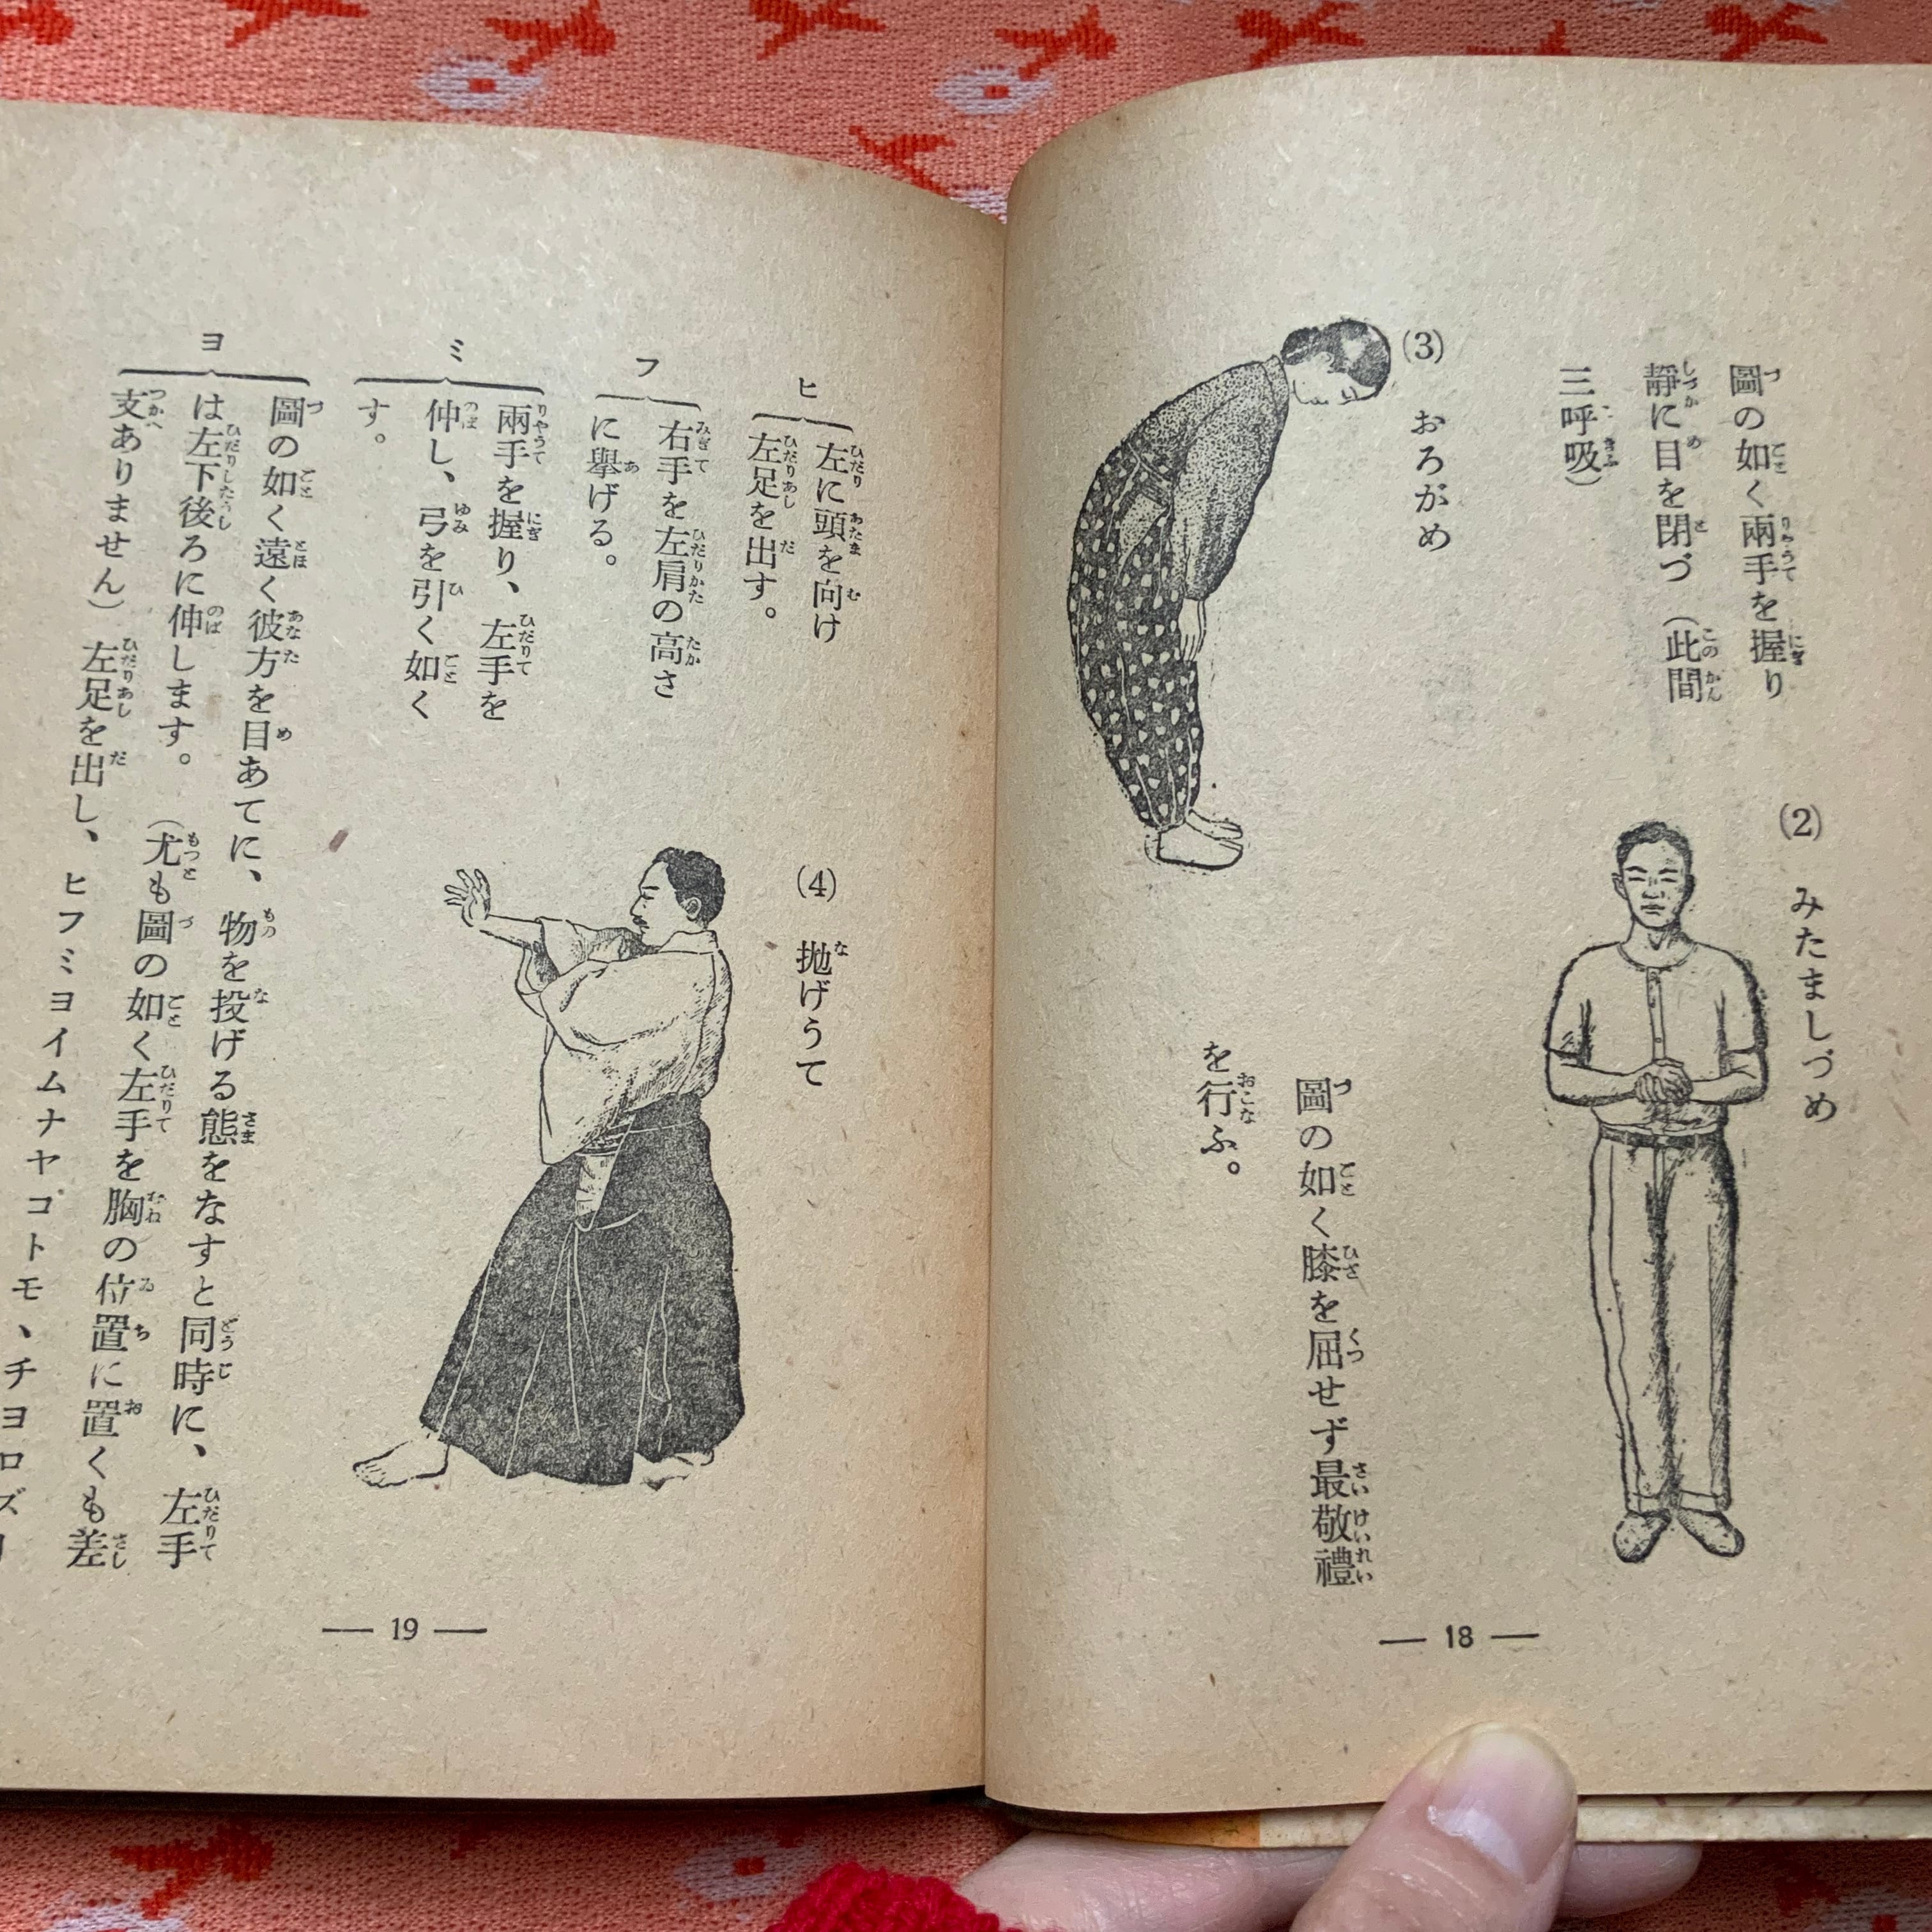 (2) みたましづめ
圖の如く兩手を握り
靜に目を閉づ(此間
三呼吸)
(3) おろがめ
圖の如く膝を屈せず最敬禮
を行ふ。
— 18 —
(4) 抛げうて
ヒ
左に頭を向け
左足を出す。
フ
右手を左肩の高さ
に擧げる。
ミ
兩手を握り、左手を
伸し、弓を引く如く
す。
ヨ
圖の如く遠く彼方を目あてに、物を投げる態をなすと同時に、左手
は左下後ろに伸します。(尤も圖の如く左手を胸の位置に置くも差
支ありません)左足を出し、ヒフミヨイムナヤコトモ、チヨロズ
— 19 —